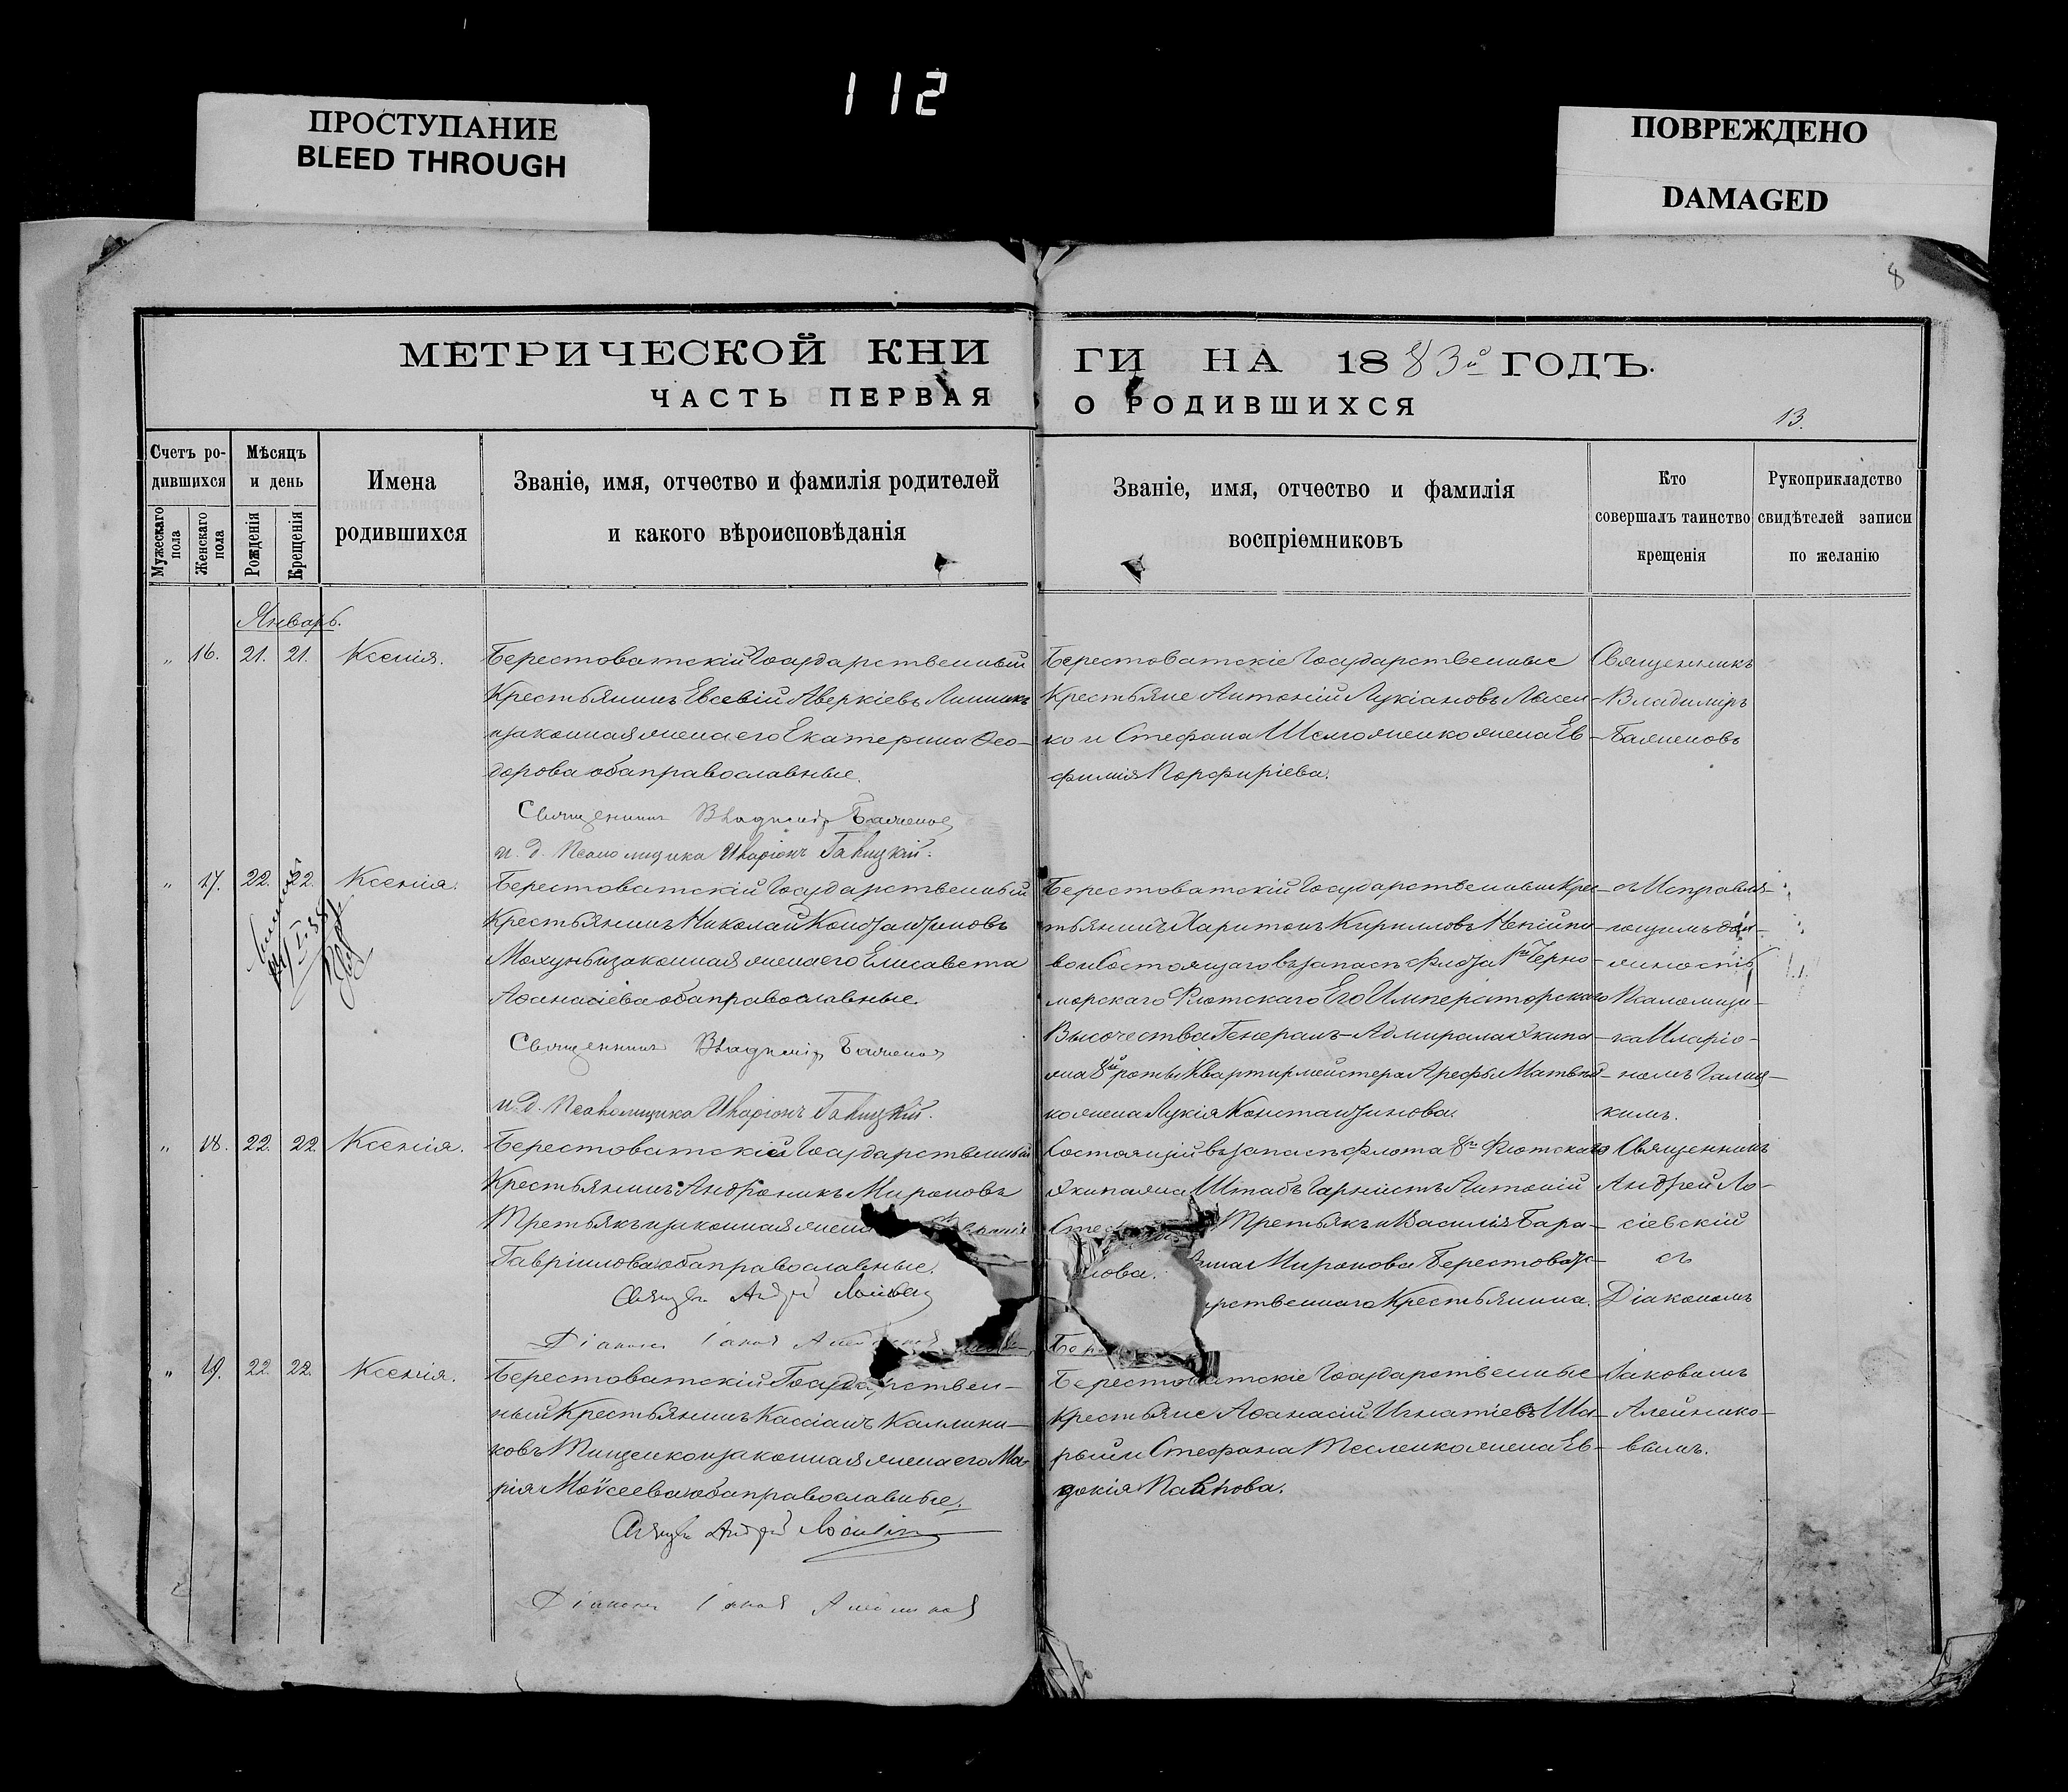 112
ПРОСТУПАНИЕ
BLEED THROUGH
ПОВРЕЖДЕНО
DAMAGED
8
МЕТРИЧЕСКОЙ КНИ
ГИ НА 1883й ГОДЪ.
ЧАСТЬ ПЕРВАЯ
О РОДИВШИХСЯ
13.
Счетъ ро-
дившихся
Мужескаго пола
Женскаго пола
Мѣсяцъ
и день
Рожденія
Крещенія
Имена
родившихся
Званіе, имя, отчество и фамилія родителей
и какого вѣроисповѣданія
Званіе, имя, отчество и фамилія
воспріемниковъ
Кто
совершалъ таинство
крещенія
Рукоприкладство
свидѣтелей записи
по желанію
Январь.
„ 16. 21. 21. Ксенія.
Берестоватскій Государственный
Крестьянинъ Евсевій Аверкіевъ
и законная жена его Екатерина Ѳео-
дорова оба православные.
Священникъ Владиміръ Баженовъ
и. д. Псаломщика Иларіонъ Галицкій.
Берестоватскіе Государственные
Крестьяне Антоній Лукіановъ Лысен-
ко и Стефана жена Ев-
фимія Порфиріева.
Священникъ
Владиміръ
Баженовъ
„ 17. 22. 22. Ксенія.
Берестоватскій Государственный
Крестьянинъ Николай Константиновъ
Мохунь и законная жена его Елисавета
Аѳанасіева оба православные.
Священникъ Владиміръ Баженовъ
и. д. Псаломщика Иларіонъ Галицкій.
Берестоватскій Государственный Крес-
тьянинъ Харитонъ Кирилловъ
и Состоящаго въ запасѣ флота 1го Черно-
морскаго Флотскаго Его Императорскаго
Высочества Генералъ-Адмирала Экипа-
жа 8й роты Квартирмейстера Арефы
жена Лукія Константинова.
съ Исправля-
ющимъ долж-
ность
Псаломщи-
ка Иларіо-
номъ Галиц-
кимъ.
„ 18. 22. 22. Ксенія.
Берестоватскій Государственный
Крестьянинъ Андроникъ Мироновъ
Третьякъ и законная жена
Гавріилова оба православные.
Священ. Андрей Лосіевскій
Діаконъ Іаковъ Алейниковъ
Состоящій въ запасѣ флота 8го Флотскаго
Экипажа Штабъ Горнистъ Антоній
Третьякъ и Василія Бара-
Миронова Берестоват-
рственнаго Крестьянина.
Священникъ
Андрей Ло-
сіевскій
съ
Діакономъ
„ 19. 22. 22. Ксенія.
Берестоватскій Государствен-
ный Крестьянинъ Кассіанъ Каллини-
ковъ Тищенко и законная жена его Ма-
рія Моѵсеева оба православные.
Священ. Андрей Лосіевскій
Діаконъ Іаковъ Алейниковъ
Берестоватскіе Государственные
Крестьяне Аѳанасій Игнатіевъ Ша-
рый и Стефана Тесленко жена Ев-
докія Павлова.
Іаковомъ
Алейнико-
вымъ.